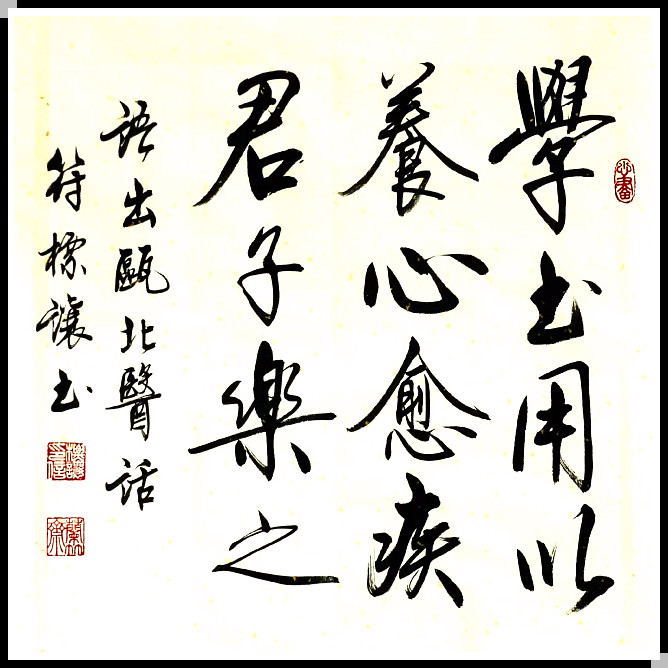 學书用以
養心愈疾
君子樂之
語出甌北醫話
符標讓书